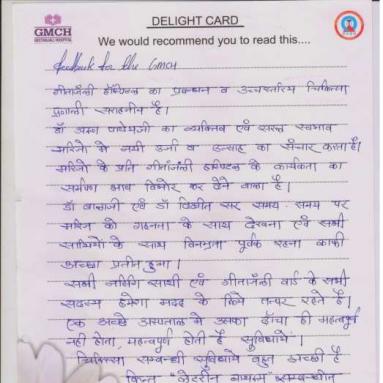 GMCH
GEETANJALI HOSPITAL
DELIGHT CARD
We would recommend you to read this....
feedback for the GMCH
गीतांजली हॉस्पिटल का प्रबन्धन व उच्चस्तरीय चिकित्सा
प्रणाली सराहनीय है।
डॉ का व्यक्तित्व एवं सरल स्वभाव
मरीजो मे नयी उर्जा व उत्साह का संचार करता है।
मरीजो के प्रति गीतांजंली हॉस्पिटल के कार्यकर्ता का
समर्पण भाव विभोर कर देने वाला है।
डॉ बालाजी एवं डॉ विनीत सर समय-समय पर
मरिज को गहनता के साथ देखना एवं सभी
साथियों के साथ विनम्रता पूर्वक रहना काफी
अच्छा प्रतीत हुआ।
सभी नर्सिंग साथी एवं गीतांजँली वार्ड के सभी
सदस्य हमेशा मदद के लिये तत्पर रहते है।
एक अच्छे अस्पताल मे उसका ढाँचा ही महत्वपूर्ण
नही होता, महत्वपूर्ण होती है सुविधाये।
चिकित्सा सम्बन्धी सुविधाये बहुत अच्छी है
किन्तु "लेटरीन बाथरूम" सम्बन्धीत